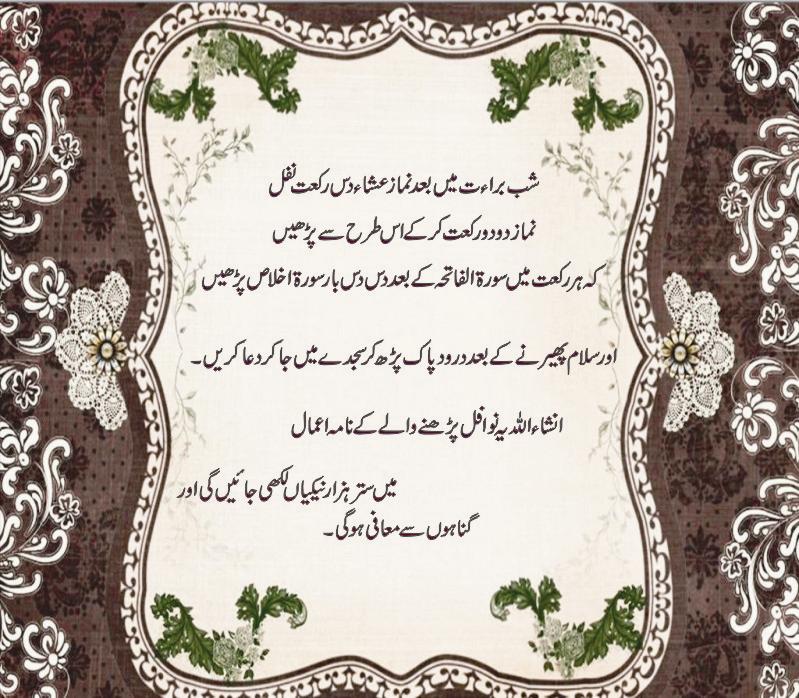 شب براءت میں بعد نماز عشاء دس رکعت نفل
نماز دو دو رکعت کر کے اس طرح سے پڑھیں
کہ ہر رکعت میں سورۃ الفاتحہ کے بعد دس دس بار سورۃ اخلاص پڑھیں
اور سلام پھیرنے کے بعد درود پاک پڑھ کر سجدے میں جا کر دعا کریں۔
انشاء اللہ یہ نوافل پڑھنے والے کے نامہ اعمال
میں ستر ہزار نیکیاں لکھی جائیں گی اور
گناہوں سے معافی ہوگی۔